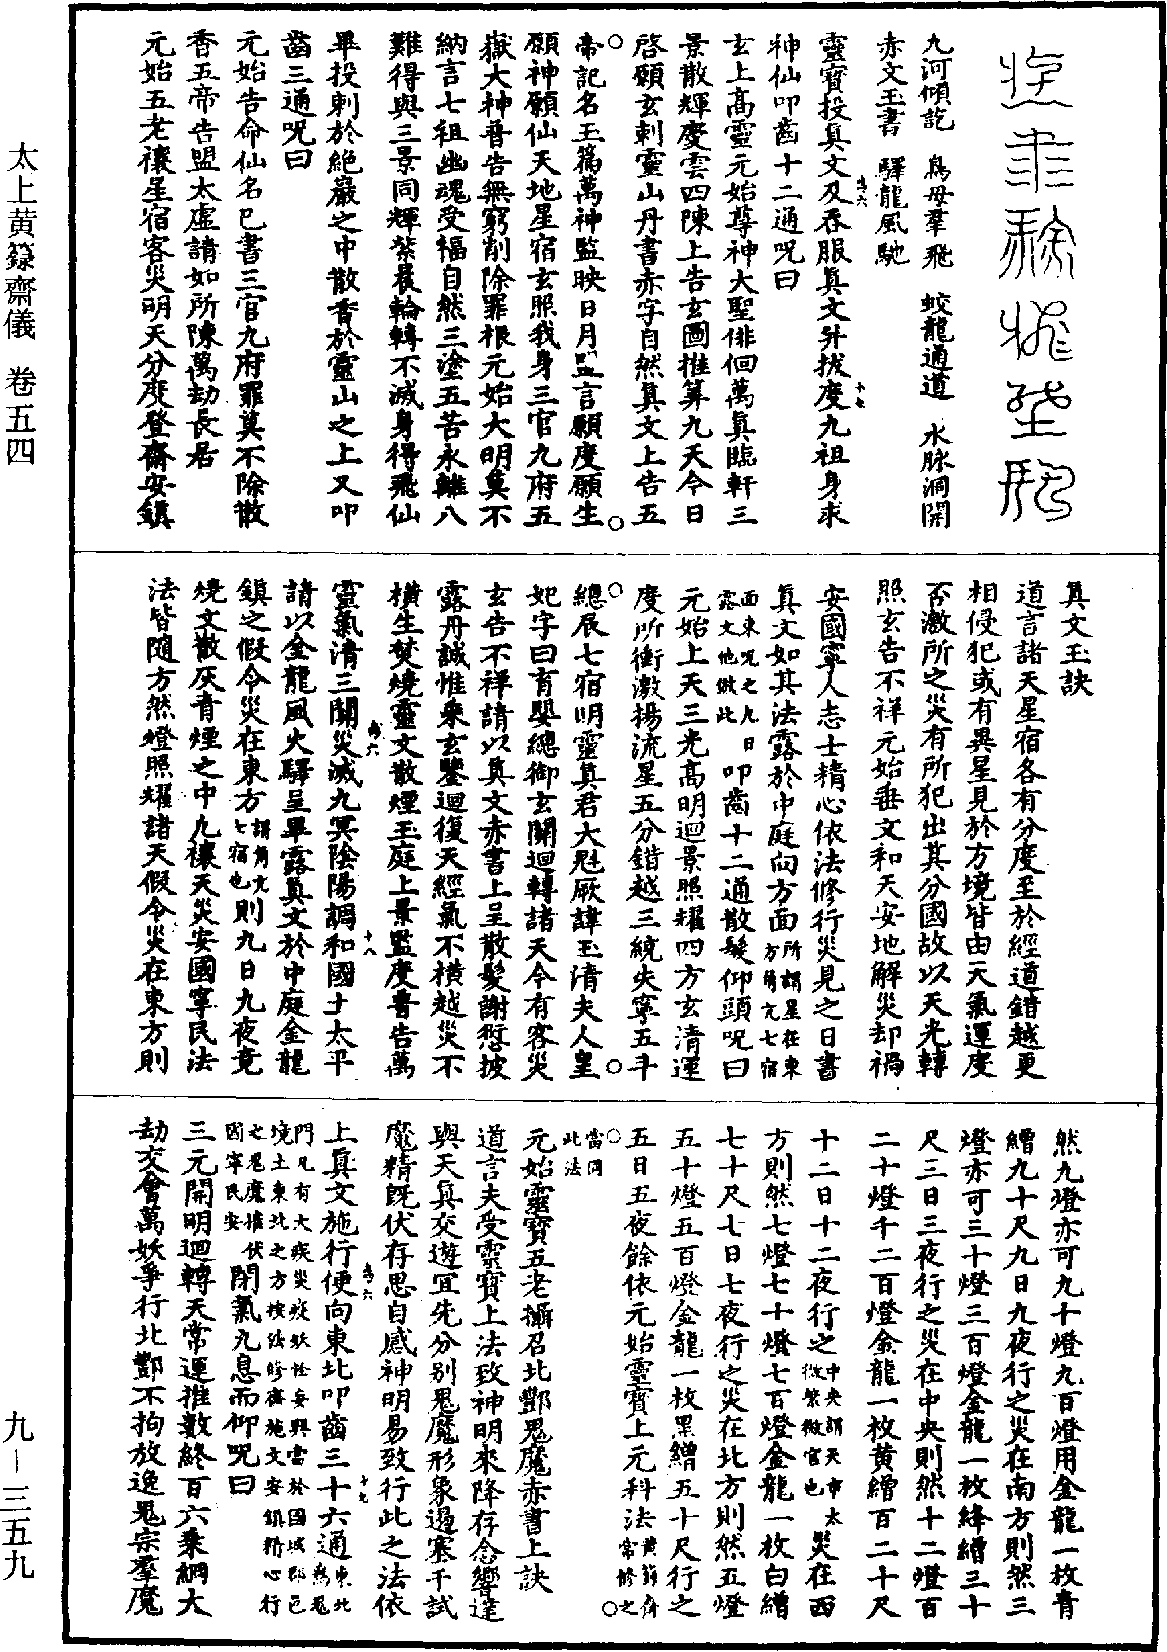 九河傾訖　鳥母羣飛　蛟龍通道　水脉洞開
赤文玉書　驛龍風馳
靈寶投真文及吞服真文升拔度九祖身求
神仙叩齒十二通呪曰
玄上高靈元始尊神大聖俳佪萬真臨軒三
景散輝慶雲四陳上告玄圖推筭九天今日
啓願玄刺靈山丹書赤字自然真文上告五
帝記名玉篇萬神監映日月監言願度願生
願神願仙天地星宿玄照我身三官九府五
嶽大神普告無窮削除罪根元始大明莫不
納言七祖幽魂受福自然三塗五苦永離八
難得與三景同輝紫晨輪轉不滅身得飛仙
畢投刺於絶巖之中散香於靈山之上又叩
齒三通呪曰
元始告命仙名已書三官九府罪莫不除散
香五帝告盟太虛請如所陳萬劫長居
元始五老禳星宿客災明天分度登齋安鎮
真文玉訣
道言諸天星宿各有分度至於經道錯越更
相侵犯或有異星見於方境皆由天氣運度
否激所之災有所犯出其分國故以天光轉
照玄告不祥元始垂文和天安地解災却禍
安國寧人志士精心依法修行災見之日書
真文如其法露於中庭向方面所謂星在東方角亢七宿
面東呪之九日露文他倣此叩齒十二通散髮仰頭呪曰
元始上天三光高明迴景照耀四方玄清運
度所衝激揚流星五分錯越三統失寧五斗
總辰七宿明靈真君大魁厥諱玉清夫人皇
妃字曰育嬰總御玄關迴轉諸天今有客災
玄告不祥請以真文赤書上呈散髮謝愆披
露丹誠惟乘玄鑒迴復天經氣不橫越災不
橫生焚燒靈文散煙玉庭上景監度普告萬
靈氣清三關災滅九冥陰陽調和國土太平
請以金龍風火驛呈畢露真文於中庭金龍
鎮之假令災在東方謂角亢七宿也則九日九夜竟
燒文散灰青煙之中九禳天災安國寧民法
法皆隨方然燈照耀諸天假令災在東方則
然九燈亦可九十燈九百燈用金龍一枚青
繒九十尺九日九夜行之災在南方則然三
燈亦可三十燈三百燈金龍一枚絳繒三十
尺三日三夜行之災在中央則然十二燈百
二十燈千二百燈金龍一枚黄繒百二十尺
十二日十二夜行之中央謂天市太微紫微宮也災在西
方則然七燈七十燈七百燈金龍一枚白繒
七十尺七日七夜行之災在北方則然五燈
五十燈五百燈金龍一枚黑繒五十尺行之
五日五夜餘依元始靈寶上元科法黄籙齋常修之
當同此法
元始靈寶五老攝召北酆鬼魔赤書上訣
道言夫受靈寶上法致神明來降存念響達
與天真交遊宜先分别鬼魔形象遏塞干試
魔精既伏存思自感神明易致行此之法依
上真文施行便向東北叩齒三十六通東北為鬼
門凡有大疾災疫妖怪妄興當於國城郡邑境土東北之方按法修齋施文安鎮精心行之鬼魔摧伏國寧民安閉氣九息而仰呪曰
三元開明迴轉天常運推數終百六乘綱大
劫交會萬妖爭行北酆不拘放逸鬼宗羣魔
太上黄籙齋儀　卷五四
九－三五九